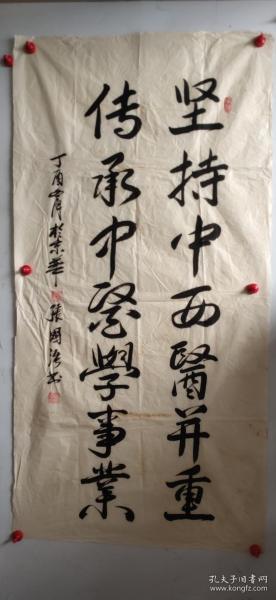 坚持中西醫并重
传承中醫學事業
丁酉 月於京華 張國治书
孔夫子旧书网